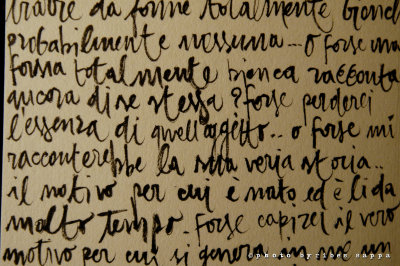 trarre da forme totalmente bianch
probabilmente nessuna... o forse una
forma totalmente bianca racconta
ancora di se stessa? forse perderei
l'essenza di quell'oggetto.. o forse mi
racconterebbe la sua veria storia..
il motivo per cui è nato ed è lì da
molto tempo. forse capirei il vero
motivo per cui si genera in me un
© photo by ribes sappa